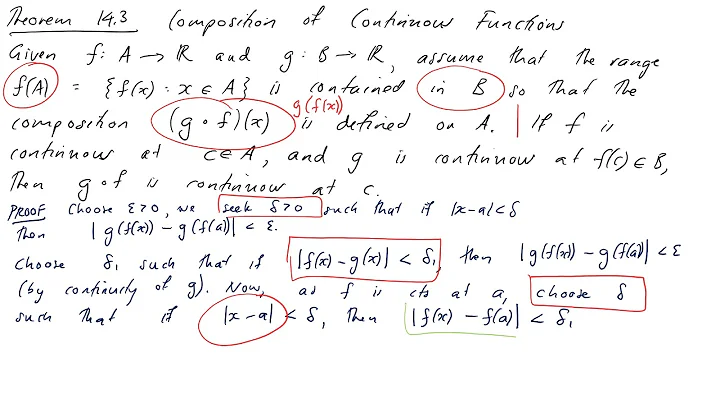 Theorem 14.3 Composition of Continuous Functions
Given f: A → ℝ and g: B → ℝ, assume that the range
f(A) = {f(x) : x ∈ A} is contained in B so that the
g(f(x))
composition (g ∘ f)(x) is defined on A. | If f is
continuous at c ∈ A, and g is continuous at f(c) ∈ B,
Then g∘f is continuous at c.
PROOF Choose ε>0, we seek δ>0 such that if |x-a|<δ
Then |g(f(x)) - g(f(a))| < ε.
Choose δ₁ such that if |f(x) - g(x)| < δ₁, then |g(f(x)) - g(f(a))| < ε
(by continuity of g). Now, as f is cts at a, choose δ
such that if |x-a| < δ, then |f(x) - f(a)| < δ₁